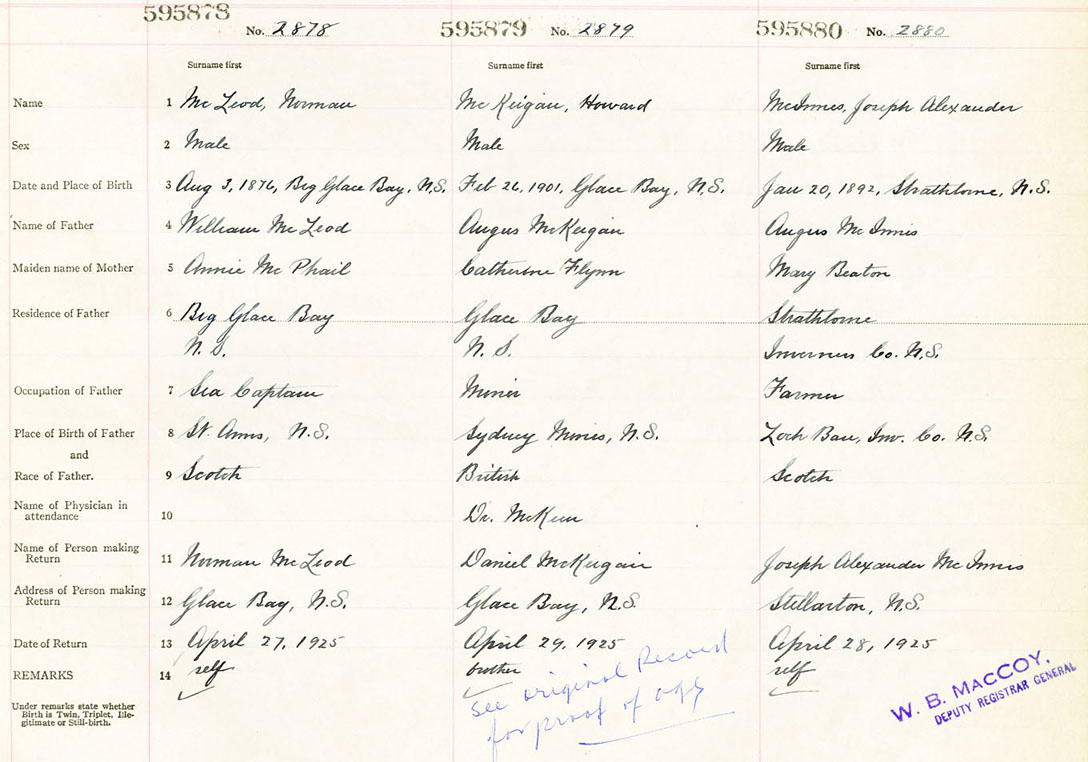 595878 No. 2878 595879 No. 2879 595880 No. 2880
Surname first Surname first Surname first
Name 1 McLeod, Norman McKeigan, Howard McInnes, Joseph Alexander
Sex 2 Male Male Male
Date and Place of Birth 3 Aug 3, 1876, Big Glace Bay, N.S. Feb 26, 1901, Glace Bay, N.S. Jan 20, 1892, Strathlorne, N.S.
Name of Father 4 William McLeod Angus McKeigan Angus McInnis
Maiden name of Mother 5 Annie McPhail Catherine Flynn Mary Beaton
Residence of Father 6 Big Glace Bay Glace Bay Strathlorne
N.S. N.S. Inverness Co. N.S.
Occupation of Father 7 Sea Captain Miner Farmer
Place of Birth of Father 8 St. Anns, N.S. Sydney Mines, N.S. Loch Ban, Inv. Co. N.S.
and
Race of Father. 9 Scotch British Scotch
Name of Physician in
attendance 10 Dr. McKeen
Name of Person making
Return 11 Norman McLeod Daniel McKeigan Joseph Alexander McInnis
Address of Person making
Return 12 Glace Bay, N.S. Glace Bay, N.S. Stellarton, N.S.
Date of Return 13 April 27, 1925 April 29, 1925 April 28, 1925
REMARKS 14 self brother self
see original Record
for proof of age
Under remarks state whether
Birth is Twin, Triplet, Ille-
gitimate or Still-birth.
W. B. MACCOY,
DEPUTY REGISTRAR GENERAL